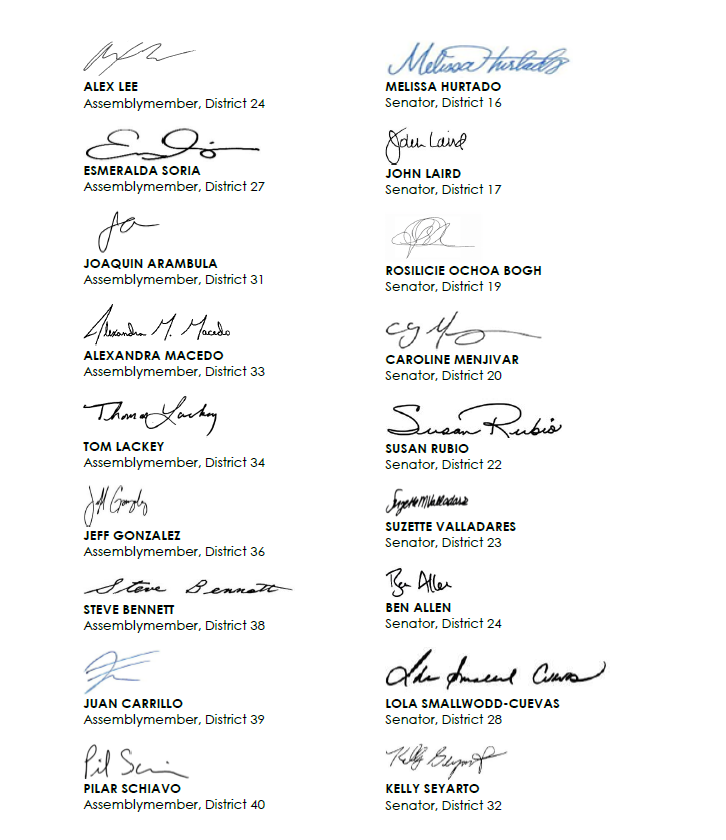 ALEX LEE
Assemblymember, District 24
Esmeralda Soria
Assemblymember, District 27
JOAQUIN ARAMBULA
Assemblymember, District 31
Alexandra M. Macedo
ALEXANDRA MACEDO
Assemblymember, District 33
Thomas Lackey
TOM LACKEY
Assemblymember, District 34
Jeff Gonzalez
JEFF GONZALEZ
Assemblymember, District 36
Steve Bennett
STEVE BENNETT
Assemblymember, District 38
JUAN CARRILLO
Assemblymember, District 39
PILAR SCHIAVO
Assemblymember, District 40
Melissa Hurtado
MELISSA HURTADO
Senator, District 16
John Laird
JOHN LAIRD
Senator, District 17
ROSILICIE OCHOA BOGH
Senator, District 19
CAROLINE MENJIVAR
Senator, District 20
Susan Rubio
SUSAN RUBIO
Senator, District 22
Suzette M Valladares
SUZETTE VALLADARES
Senator, District 23
Ben Allen
BEN ALLEN
Senator, District 24
LOLA SMALLWODD-CUEVAS
Senator, District 28
Kelly Seyarto
KELLY SEYARTO
Senator, District 32